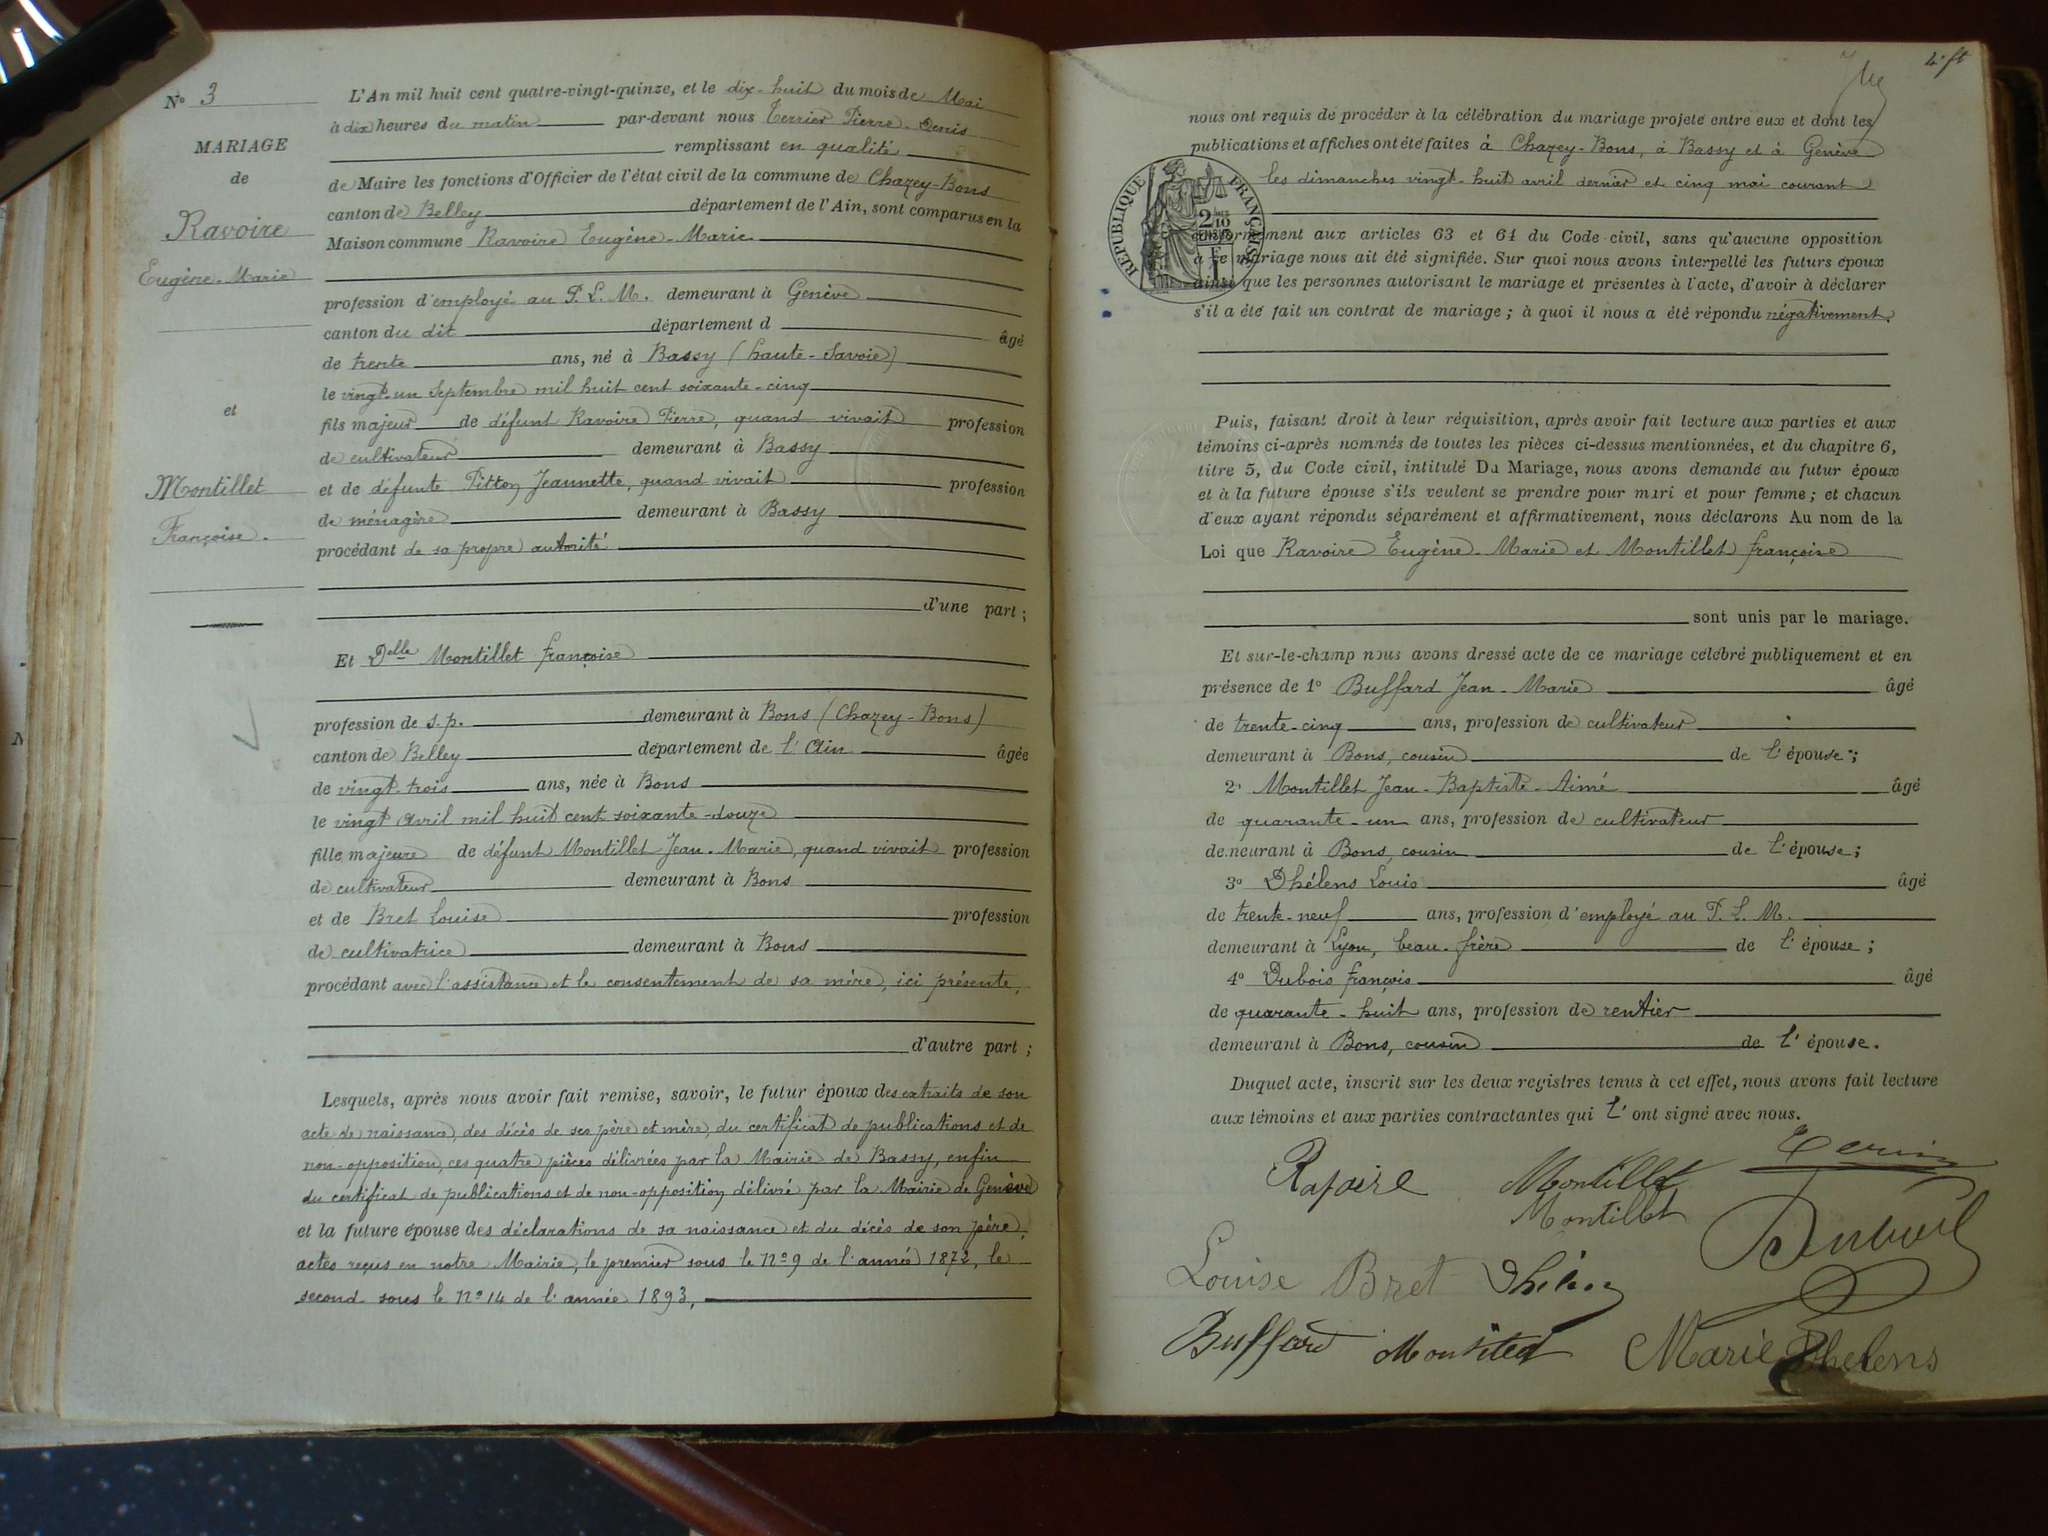 N° 3
MARIAGE
de
Ravoire
Eugène-Marie
et
Montillet
Françoise.
L'An mil huit cent quatre-vingt-quinze, et le dix-huit du mois de Mai
à dix heures du matin par-devant nous Terrier Pierre-Denis
remplissant en qualité
de Maire les fonctions d'Officier de l'état civil de la commune de Chazey-Bons
canton de Belley département de l'Ain, sont comparus en la
Maison commune Ravoire Eugène-Marie
profession d'employé au P. L. M. demeurant à Genève
canton du dit département d âgé
de trente ans, né à Bassy (haute-Savoie)
le vingt-un Septembre mil huit cent soixante-cinq
fils majeur de défunt Ravoire Pierre, quand vivait profession
de cultivateur demeurant à Bassy
et de défunte Pitton Jeannette, quand vivait profession
de ménagère demeurant à Bassy
procédant de sa propre autorité
d'une part ;
Et Delle Montillet françoise
profession de s.p. demeurant à Bons (Chazey-Bons)
canton de Belley département de l'Ain âgée
de vingt-trois ans, née à Bons
le vingt Avril mil huit cent soixante-douze
fille majeure de défunt Montillet Jean-Marie, quand vivait profession
de cultivateur demeurant à Bons
et de Bret Louise profession
de cultivatrice demeurant à Bons
procédant avec l'assistance et le consentement de sa mère, ici présente,
d'autre part ;
Lesquels, après nous avoir fait remise, savoir, le futur époux des extraits de son
acte de naissance, des décès de ses père et mère, du certificat de publications et de
non-opposition, ces quatre pièces délivrées par la Mairie de Bassy, enfin
du certificat de publications et de non-opposition délivré par la Mairie de Genève
et la future épouse des déclarations de sa naissance et du décès de son père,
actes reçus en notre Mairie, le premier sous le N° 9 de l'année 1872, le
second sous le N° 14 de l'année 1893,
4e ft
nous ont requis de procéder à la célébration du mariage projeté entre eux et dont les
publications et affiches ont été faites à Chazey-Bons, à Bassy et à Genève
les dimanches vingt-huit avril dernier et cinq mai courant
RÉPUBLIQUE FRANÇAISE
2/10
conformément aux articles 63 et 64 du Code civil, sans qu'aucune opposition
à ce mariage nous ait été signifiée. Sur quoi nous avons interpellé les futurs époux
ainsi que les personnes autorisant le mariage et présentes à l'acte, d'avoir à déclarer
s'il a été fait un contrat de mariage ; à quoi il nous a été répondu négativement.
Puis, faisant droit à leur réquisition, après avoir fait lecture aux parties et aux
témoins ci-après nommés de toutes les pièces ci-dessus mentionnées, et du chapitre 6,
titre 5, du Code civil, intitulé Du Mariage, nous avons demandé au futur époux
et à la future épouse s'ils veulent se prendre pour mari et pour femme ; et chacun
d'eux ayant répondu séparément et affirmativement, nous déclarons Au nom de la
Loi que Ravoire Eugène-Marie et Montillet françoise
sont unis par le mariage.
Et sur-le-champ nous avons dressé acte de ce mariage célébré publiquement et en
présence de 1° Buffard Jean-Marie âgé
de trente-cinq ans, profession de cultivateur
demeurant à Bons, cousin de l'épouse ;
2° Montillet Jean-Baptiste-Aimé âgé
de quarante-un ans, profession de cultivateur
demeurant à Bons, cousin de l'épouse ;
3° Dhélens Louis âgé
de trente-neuf ans, profession d'employé au P. L. M.
demeurant à Lyon, beau-frère de l'épouse ;
4° Dubois françois âgé
de quarante-huit ans, profession de rentier
demeurant à Bons, cousin de l'épouse.
Duquel acte, inscrit sur les deux registres tenus à cet effet, nous avons fait lecture
aux témoins et aux parties contractantes qui l'ont signé avec nous.
Ravoire Montillet Terrier
Montillet Dubois
Louise Bret Dhélens
Buffard Montillet Marie Dhelens